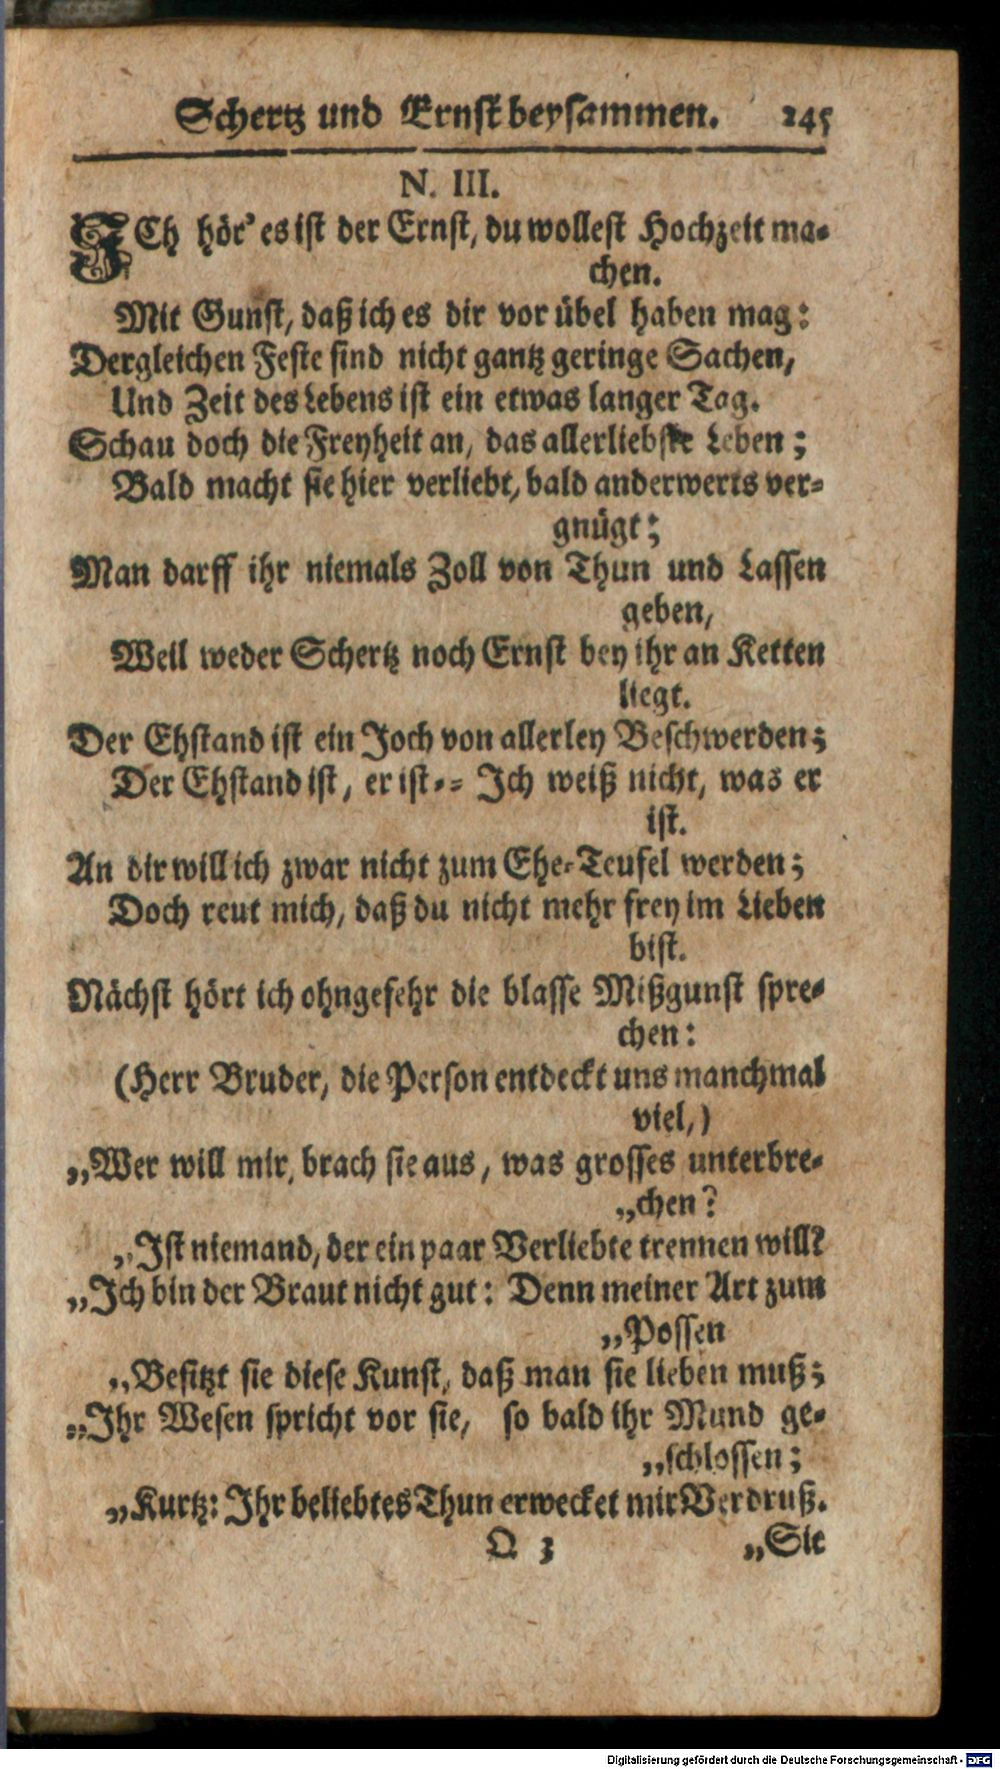 Schertz und Ernst beysammen. 245
N. III.
ICh hör' es ist der Ernst, du wollest Hochzeit ma-
chen.
Mit Gunst, daß ich es dir vor übel haben mag:
Dergleichen Feste sind nicht gantz geringe Sachen,
Und Zeit des Lebens ist ein etwas langer Tag.
Schau doch die Freyheit an, das allerliebste Leben;
Bald macht sie hier verliebt, bald anderwerts ver-
gnügt;
Man darff ihr niemals Zoll von Thun und Lassen
geben,
Weil weder Schertz noch Ernst bey ihr an Ketten
liegt.
Der Ehstand ist ein Joch von allerley Beschwerden;
Der Ehstand ist, er ist-- Ich weiß nicht, was er
ist.
An dir will ich zwar nicht zum Ehe-Teufel werden;
Doch reut mich, daß du nicht mehr frey im Lieben
bist.
Nächst hört ich ohngefehr die blasse Mißgunst spre-
chen:
(Herr Bruder, die Person entdeckt uns manchmal
viel,)
„Wer will mir, brach sie aus, was grosses unterbre-
„chen?
„Ist niemand, der ein paar Verliebte trennen will?
„Ich bin der Braut nicht gut: Denn meiner Art zum
„Possen
„Besitzt sie diese Kunst, daß man sie lieben muß;
„Ihr Wesen spricht vor sie, so bald ihr Mund ge-
„schlossen;
„Kurtz: Ihr beliebtes Thun erwecket mir Verdruß.
Q 3 „Sie
Digitalisierung gefördert durch die Deutsche Forschungsgemeinschaft - DFG